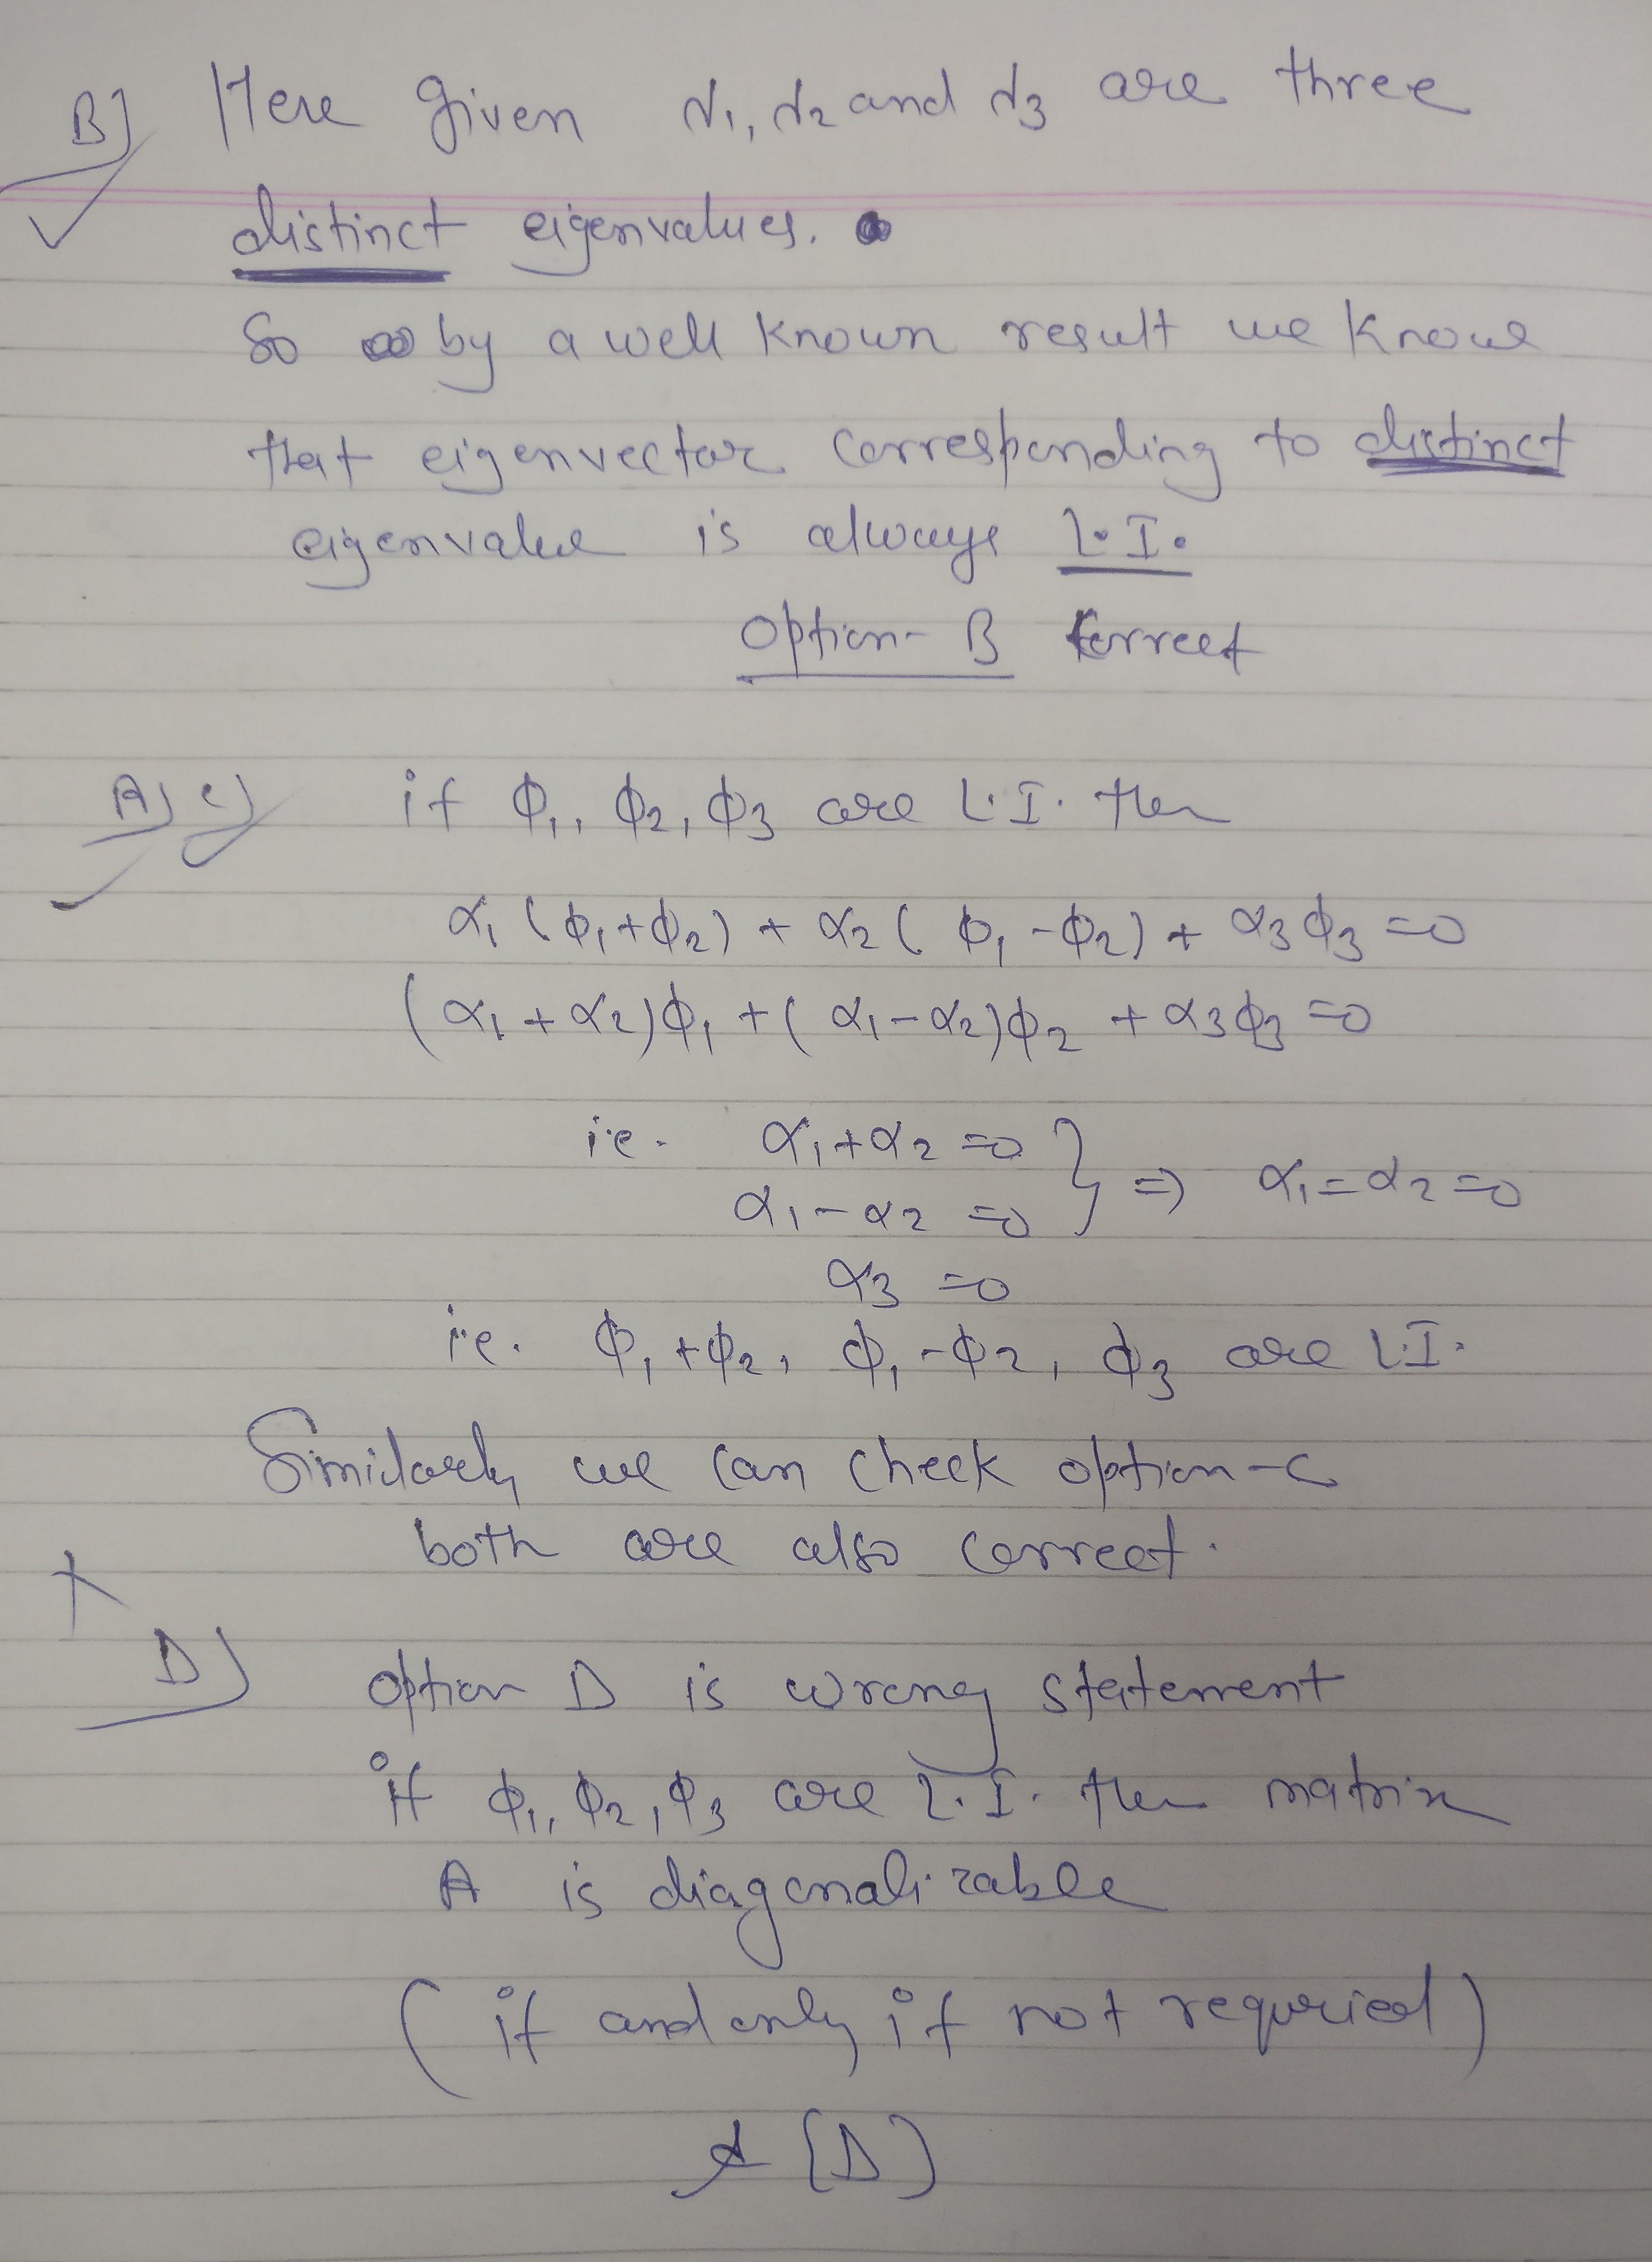 B) Here given λ1, λ2 and λ3 are three
distinct eigenvalues.
So by a well known result we know
that eigenvector corresponding to distinct
eigenvalue is always L.I.
option- B Correct
A) C) if ϕ1, ϕ2, ϕ3 are L.I. then
α1 (ϕ1+ϕ2) + α2 ( ϕ1 -ϕ2) + α3 ϕ3 =0
(α1 + α2)ϕ1 + ( α1 - α2)ϕ2 + α3 ϕ3 =0
i.e. α1+α2 =0
α1 - α2 =0 } ⇒ α1 = α2 =0
α3 =0
i.e. ϕ1 +ϕ2, ϕ1 -ϕ2, ϕ3 are L.I.
Similarly we can check option-C
both are also correct.
D) option D is wrong statement
if ϕ1, ϕ2, ϕ3 are L.I. then matrix
A is diagonalizable
( if and only if not requried )
(D)